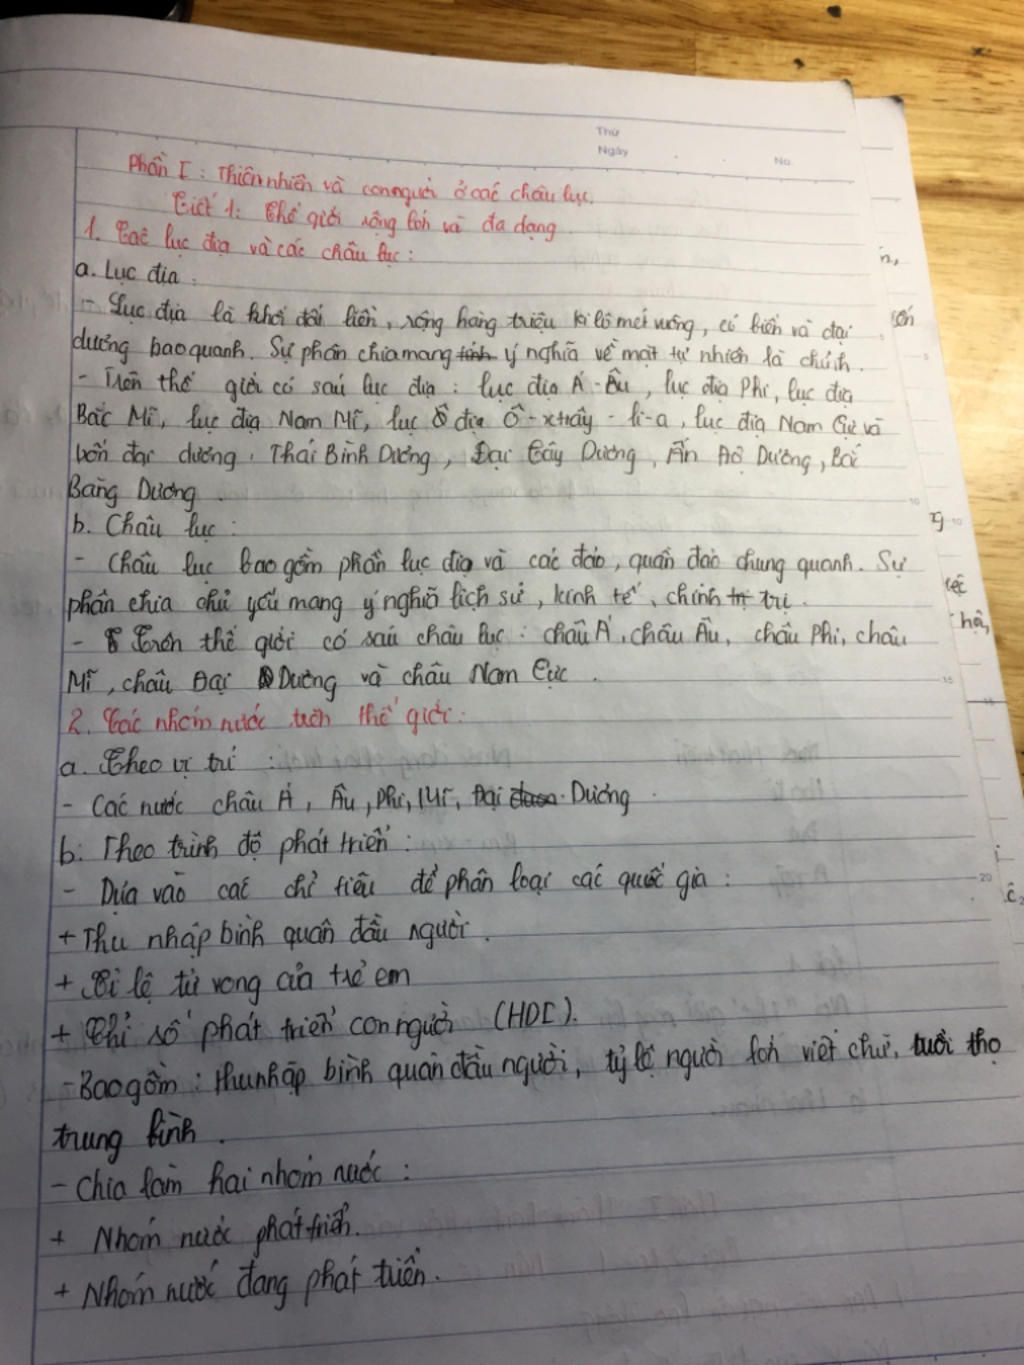 Thứ
Ngày
No.
Phần I : Thiên nhiên và con người ở các châu lục.
Tiết 1: Thế giới rộng lớn và đa dạng.
1. Các lục địa và các châu lục :
a. Lục địa :
- Lục địa là khối đất liền, rộng hàng triệu ki lô mét vuông, có biển và đại
dương bao quanh. Sự phân chia mang ý nghĩa về mặt tự nhiên là chính.
- Trên thế giới có sáu lục địa : lục địa Á - Âu, lục địa Phi, lục địa
Bắc Mĩ, lục địa Nam Mĩ, lục địa Ô - xtrây - li - a, lục địa Nam Cực và
bốn đại dương : Thái Bình Dương, Đại Tây Dương, Ấn Độ Dương, Bắc
Băng Dương.
b. Châu lục :
- Châu lục bao gồm phần lục địa và các đảo, quần đảo chung quanh. Sự
phân chia chủ yếu mang ý nghĩa lịch sử, kinh tế, chính trị.
- Trên thế giới có sáu châu lục : châu Á, châu Âu, châu Phi, châu
Mĩ, châu Đại Dương và châu Nam Cực.
2. Các nhóm nước trên thế giới :
a. Theo vị trí :
- Các nước châu Á, Âu, Phi, Mĩ, Đại Dương
b. Theo trình độ phát triển :
- Dựa vào các chỉ tiêu để phân loại các quốc gia :
+ Thu nhập bình quân đầu người.
+ Tỉ lệ tử vong của trẻ em
+ Chỉ số phát triển con người (HDI).
- Bao gồm : thu nhập bình quân đầu người, tỷ lệ người lớn viết chữ, tuổi thọ
trung bình.
- Chia làm hai nhóm nước :
+ Nhóm nước phát triển.
+ Nhóm nước đang phát triển.
10
15
20